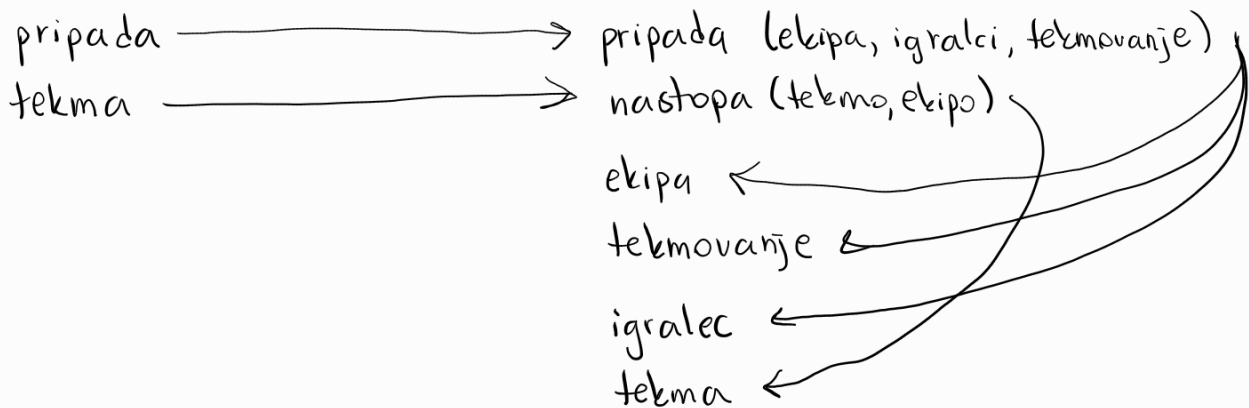 pripada → pripada (ekipa, igralci, tekmovanje)
tekma → nastopa (tekmo, ekipo)
ekipa
tekmovanje
igralec
tekma